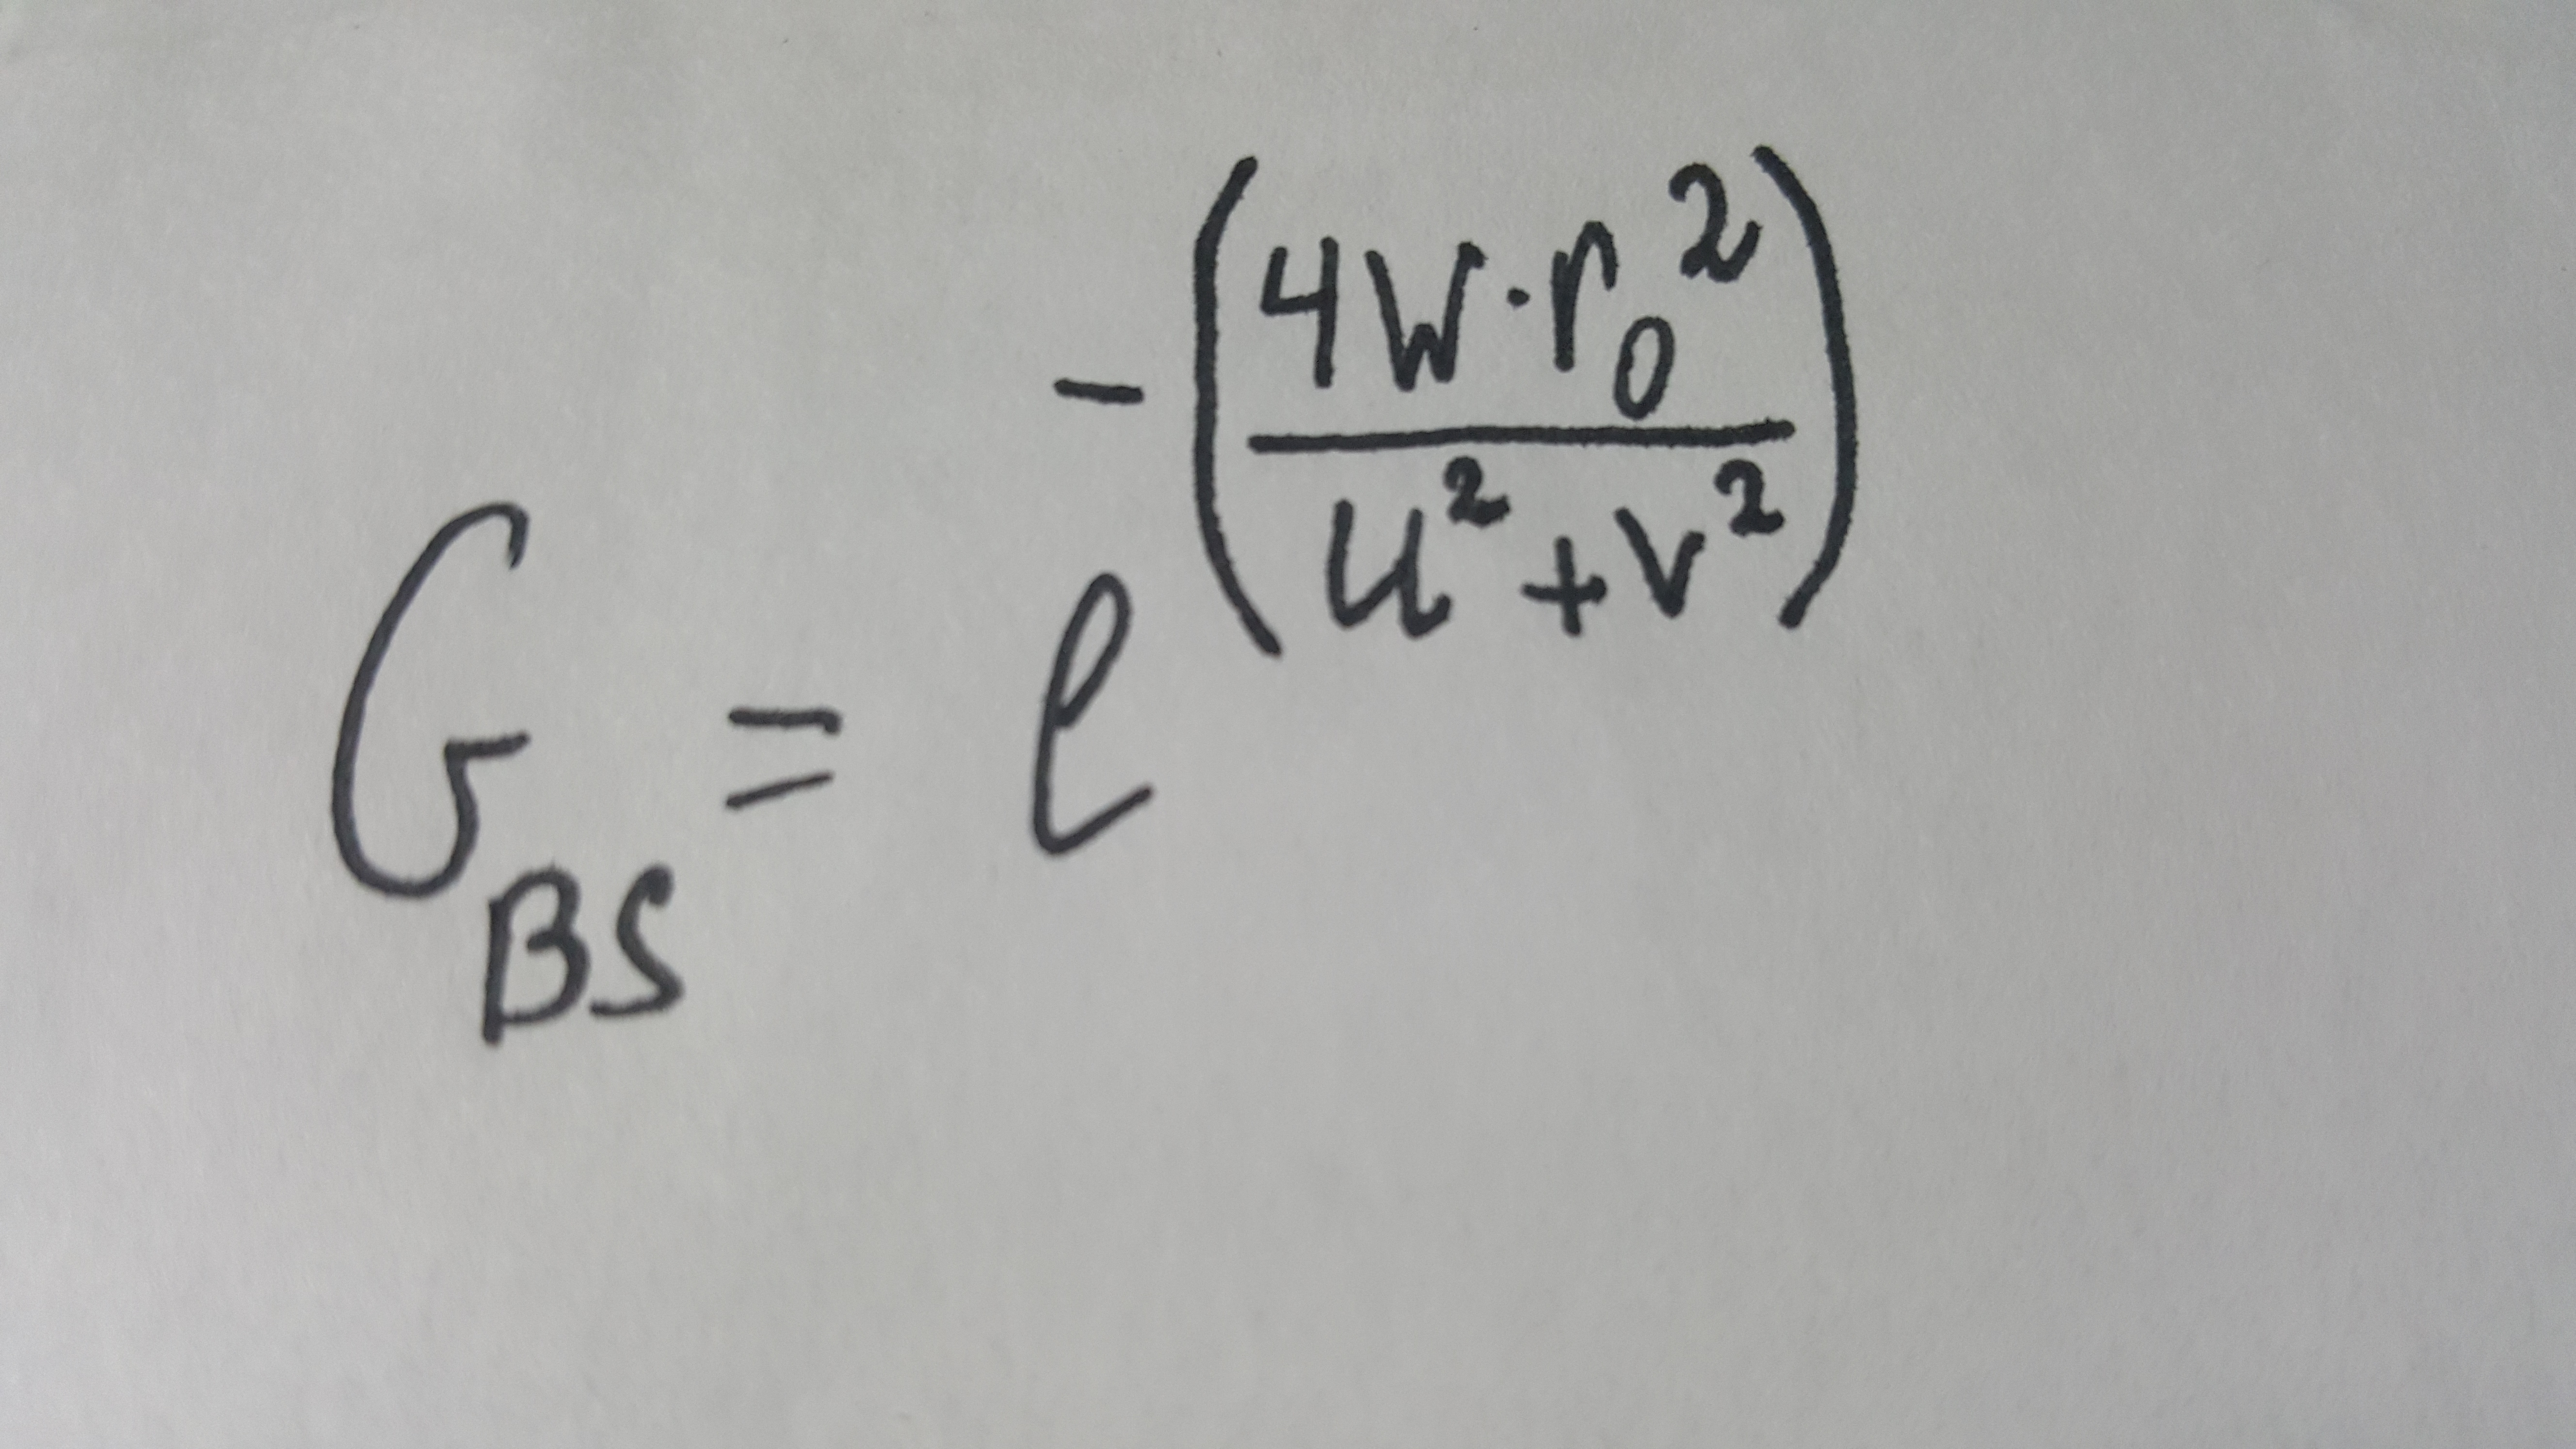 G_BS = e^-(4W·r_0^2 / u^2+v^2)